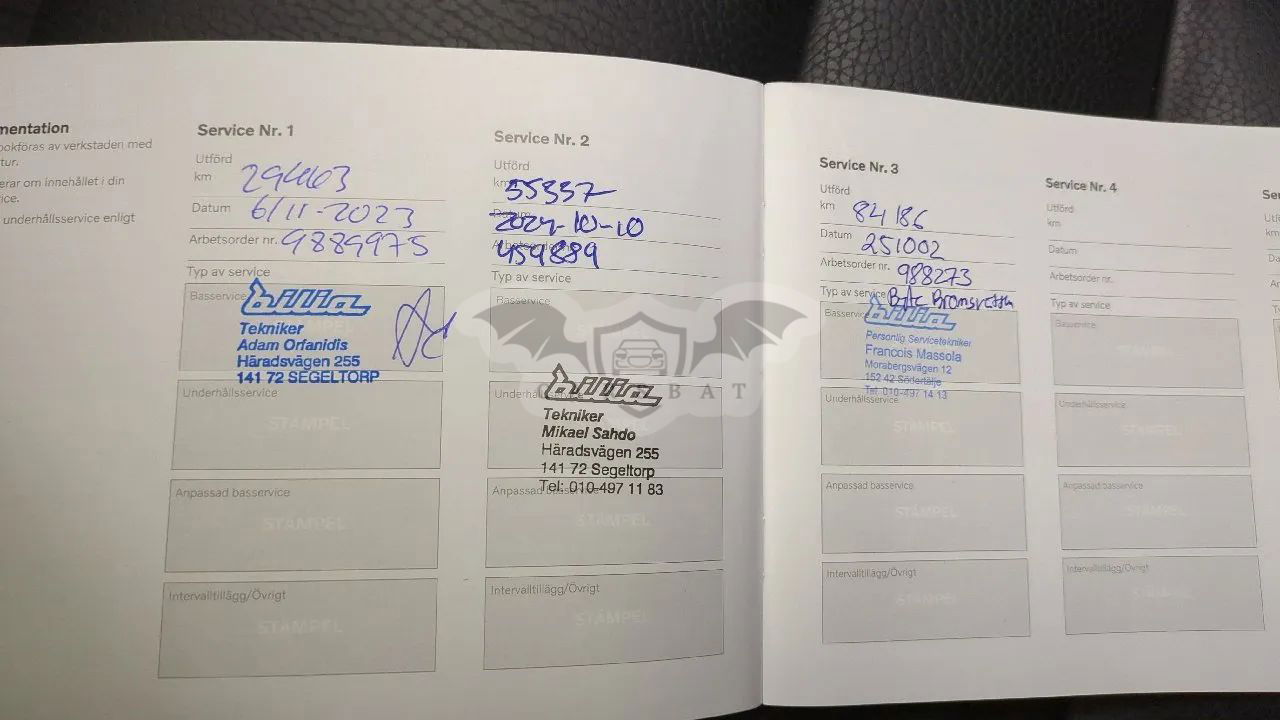 mentation
bokföras av verkstaden med
tur.
erar om innehållet i din
ice.
underhållsservice enligt
Service Nr. 1
Utförd
km 29463
Datum 6/11-2023
Arbetsorder nr. 9889975
Typ av service
Basservice
bilia
Tekniker
Adam Orfanidis
Häradsvägen 255
141 72 SEGELTORP
Underhållsservice
STÄMPEL
Anpassad basservice
STÄMPEL
Intervalltillägg/Övrigt
STÄMPEL
Service Nr. 2
Utförd
km 55357
2024-10-10
459889
Typ av service
Basservice
bilia
Underhållsservice
Tekniker
Mikael Sahdo
Häradsvägen 255
141 72 Segeltorp
Tel: 010-497 11 83
Anpassad basservice
STÄMPEL
Intervalltillägg/Övrigt
STÄMPEL
BAT
Service Nr. 3
Utförd
km 84186
Datum 251002
Arbetsorder nr. 988273
Typ av service Byte Bromsvätska
Basservice
bilia
Personlig Servicetekniker
Francois Massola
Morabergsvägen 12
152 42 Södertälje
Tel: 010-497 14 13
Underhållsservice
STÄMPEL
Anpassad basservice
STÄMPEL
Intervalltillägg/Övrigt
STÄMPEL
Service Nr. 4
Utförd
km
Datum
Arbetsorder nr.
Typ av service
Basservice
STÄMPEL
Underhållsservice
STÄMPEL
Anpassad basservice
STÄMPEL
Intervalltillägg/Övrigt
STÄMPEL
Se
Utf
km
Da
Ar
Ty